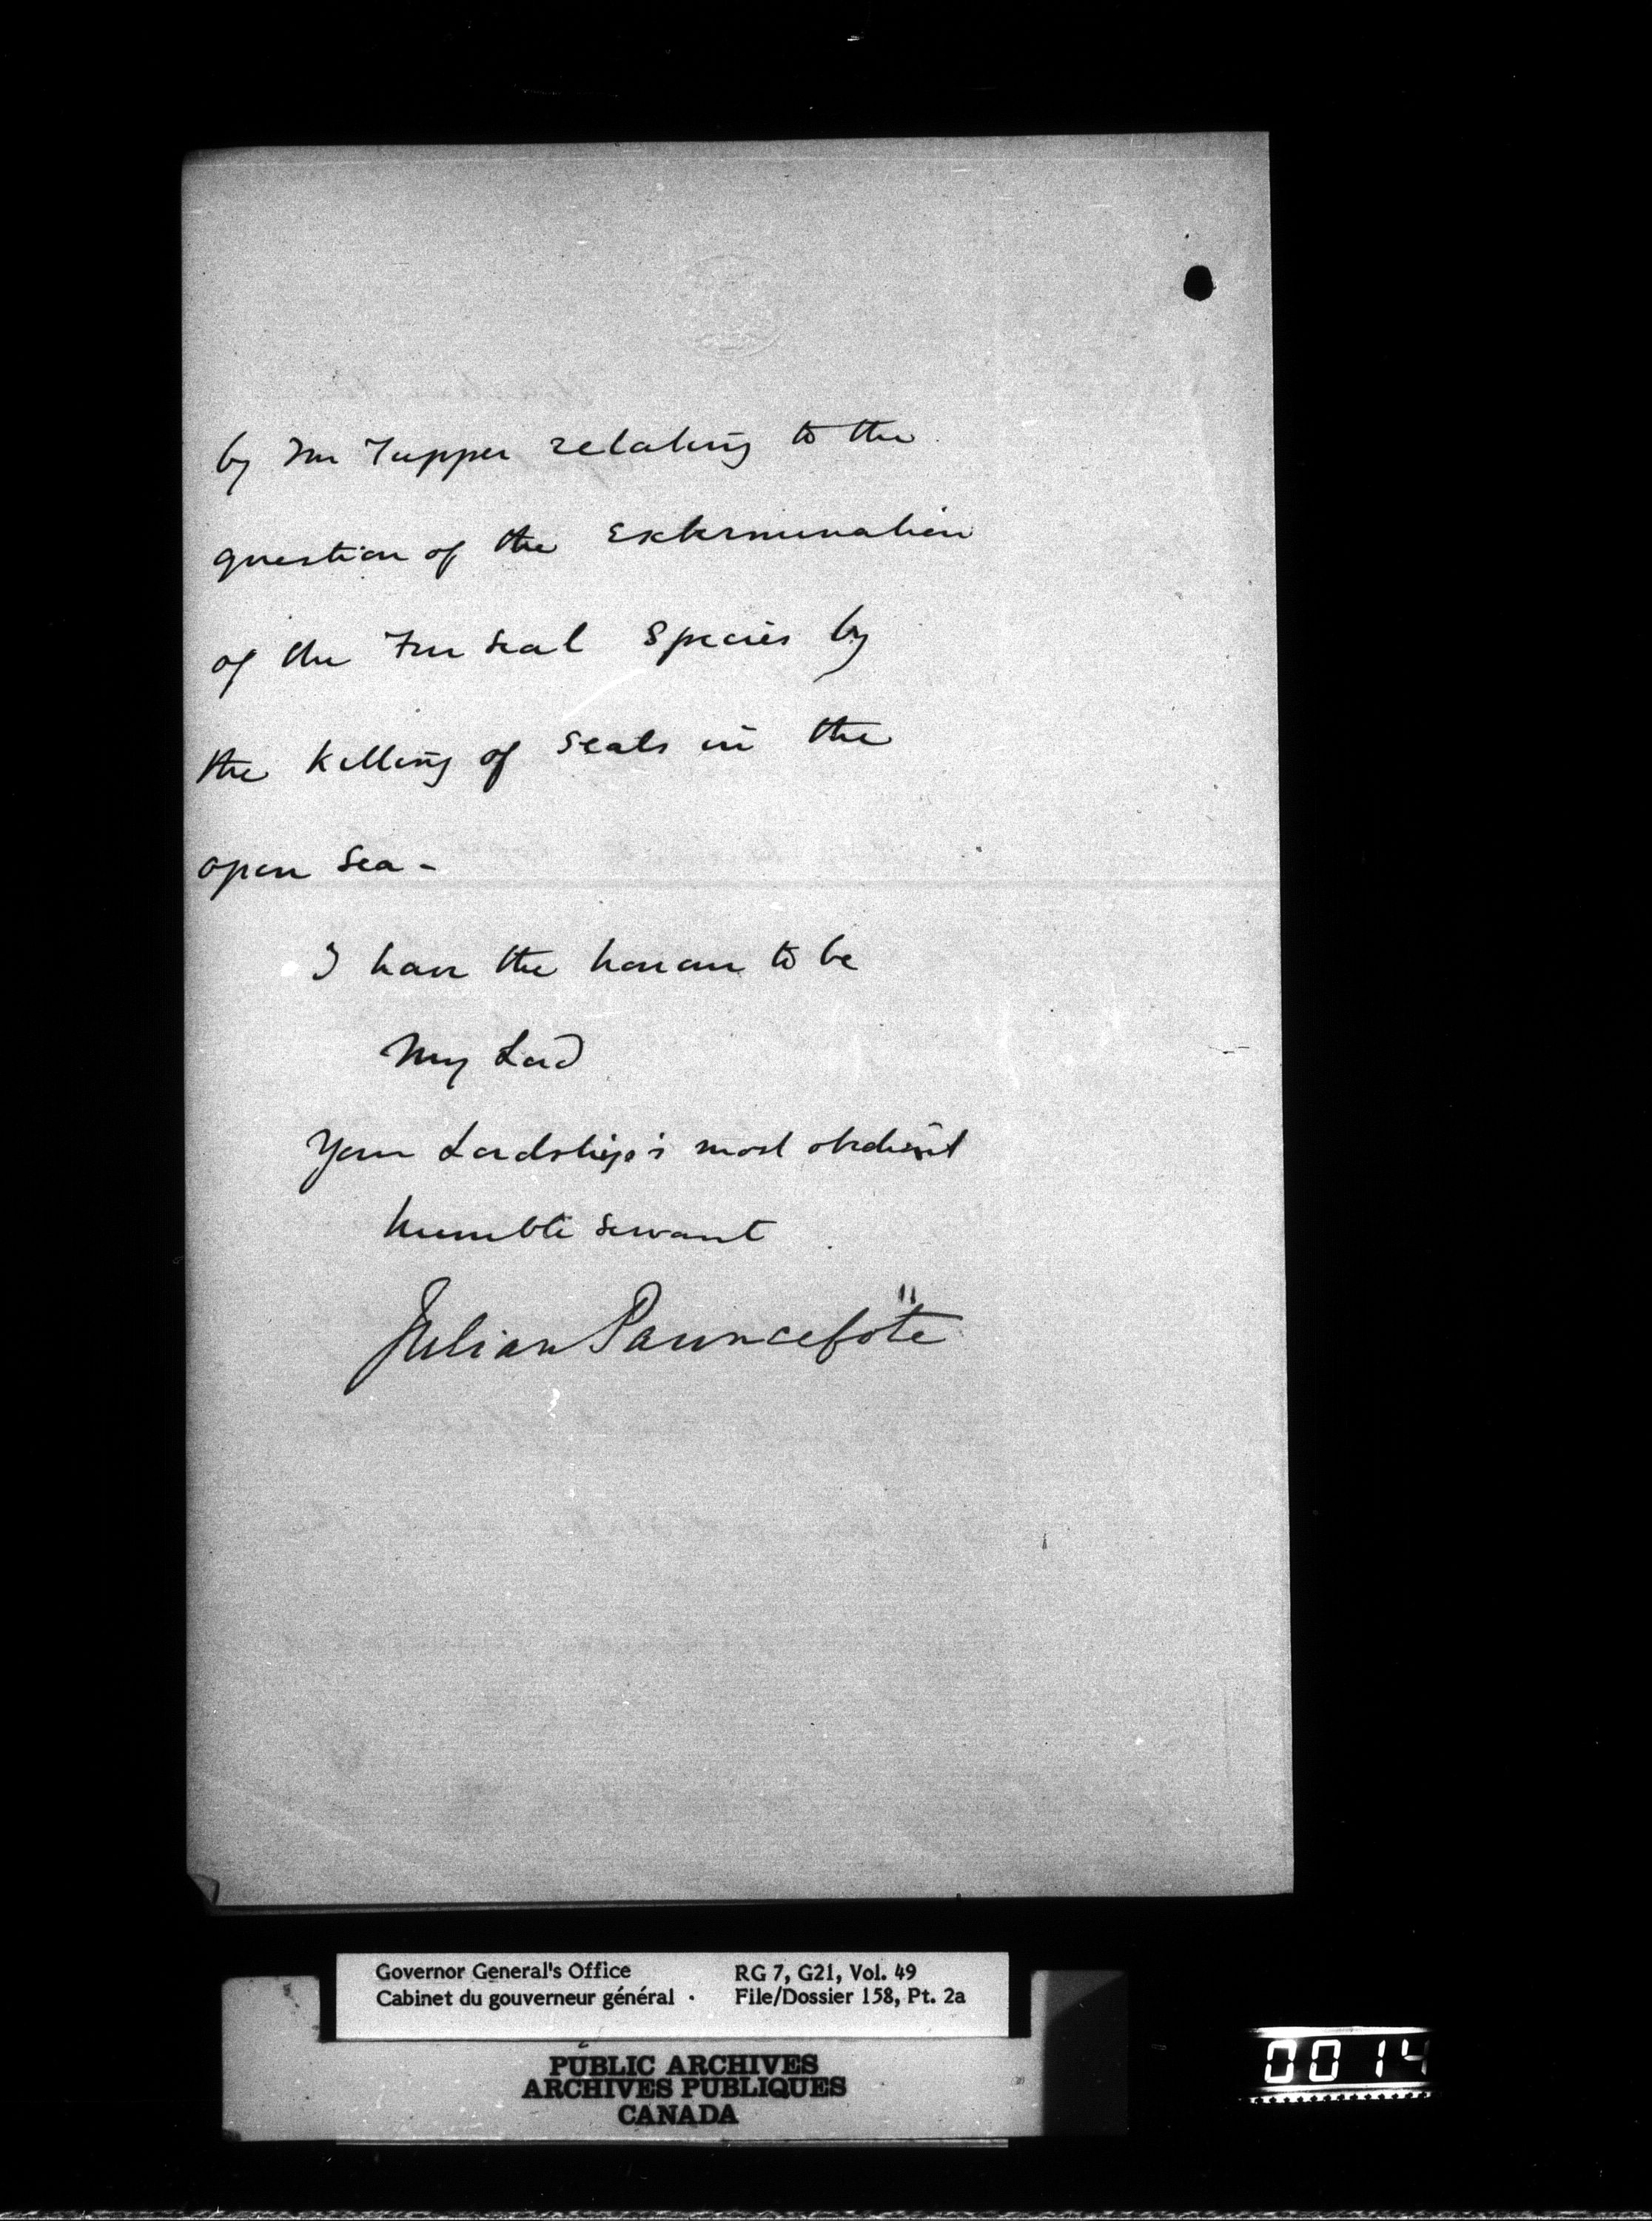 by Mr Tupper relating to the
question of the Extermination
of the Fur Seal Species by
the Killing of Seals in the
open Sea -
I have the honour to be
My Lord
Your Lordship's most obedient
humble servant
Julian Pauncefote
Governor General's Office
Cabinet du gouverneur général
RG 7, G21, Vol. 49
File/Dossier 158, Pt. 2a
PUBLIC ARCHIVES
ARCHIVES PUBLIQUES
CANADA
0014